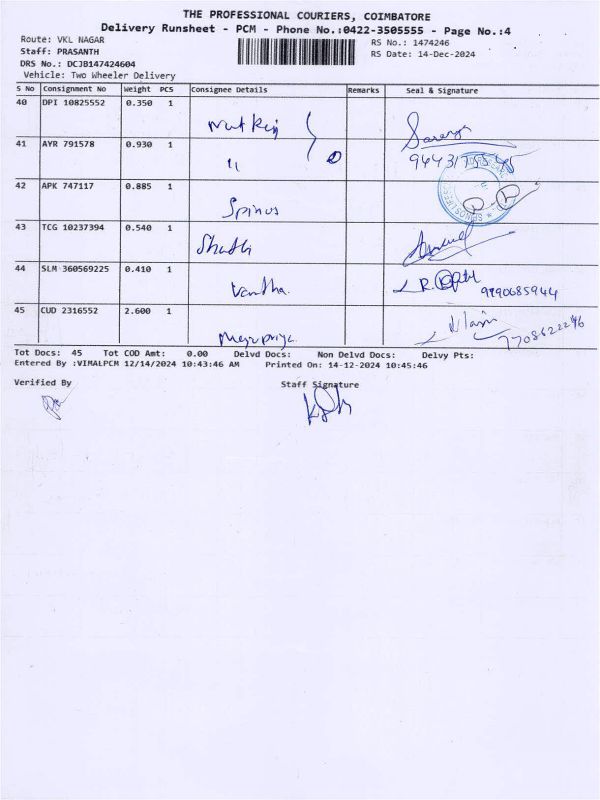 THE PROFESSIONAL COURIERS, COIMBATORE
Delivery Runsheet - PCM - Phone No.:0422-3505555 - Page No.:4
Route: VKL NAGAR
Staff: PRASANTH
DRS No.: DCJB147424604
Vehicle: Two Wheeler Delivery
RS No.: 1474246
RS Date: 14-Dec-2024
S No Consignment No Weight PCS Consignee Details Remarks Seal & Signature
40 DPI 10825552 0.350 1
41 AYR 791578 0.930 1 "
42 APK 747117 0.885 1 Spinos
43 TCG 10237394 0.540 1
44 SLM 360569225 0.410 1 9190685944
45 CUD 2316552 2.600 1
Tot Docs: 45 Tot COD Amt: 0.00 Delvd Docs: Non Delvd Docs: Delvy Pts:
Entered By :VIMALPCM 12/14/2024 10:43:46 AM Printed On: 14-12-2024 10:45:46
Verified By Staff Signature